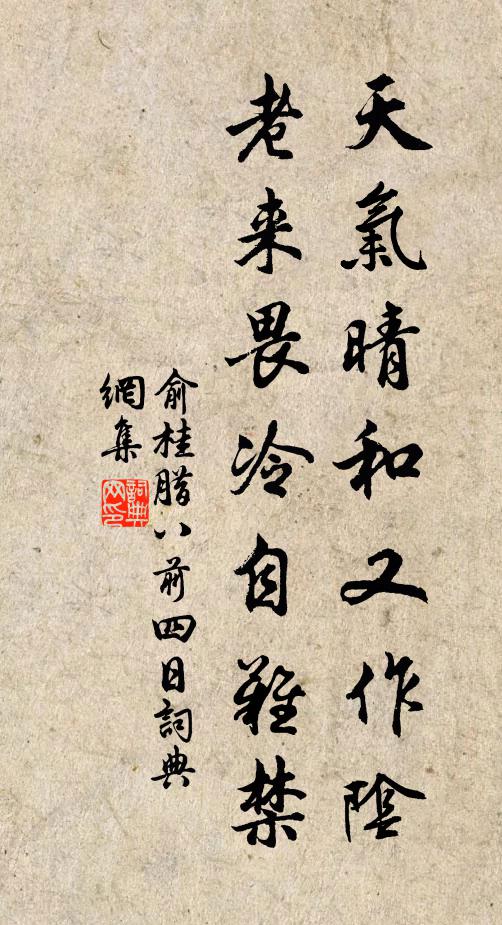 天氣晴和又作陰
老来畏冷自難禁
俞桂腊八前四日詞典
網集
詞典网印